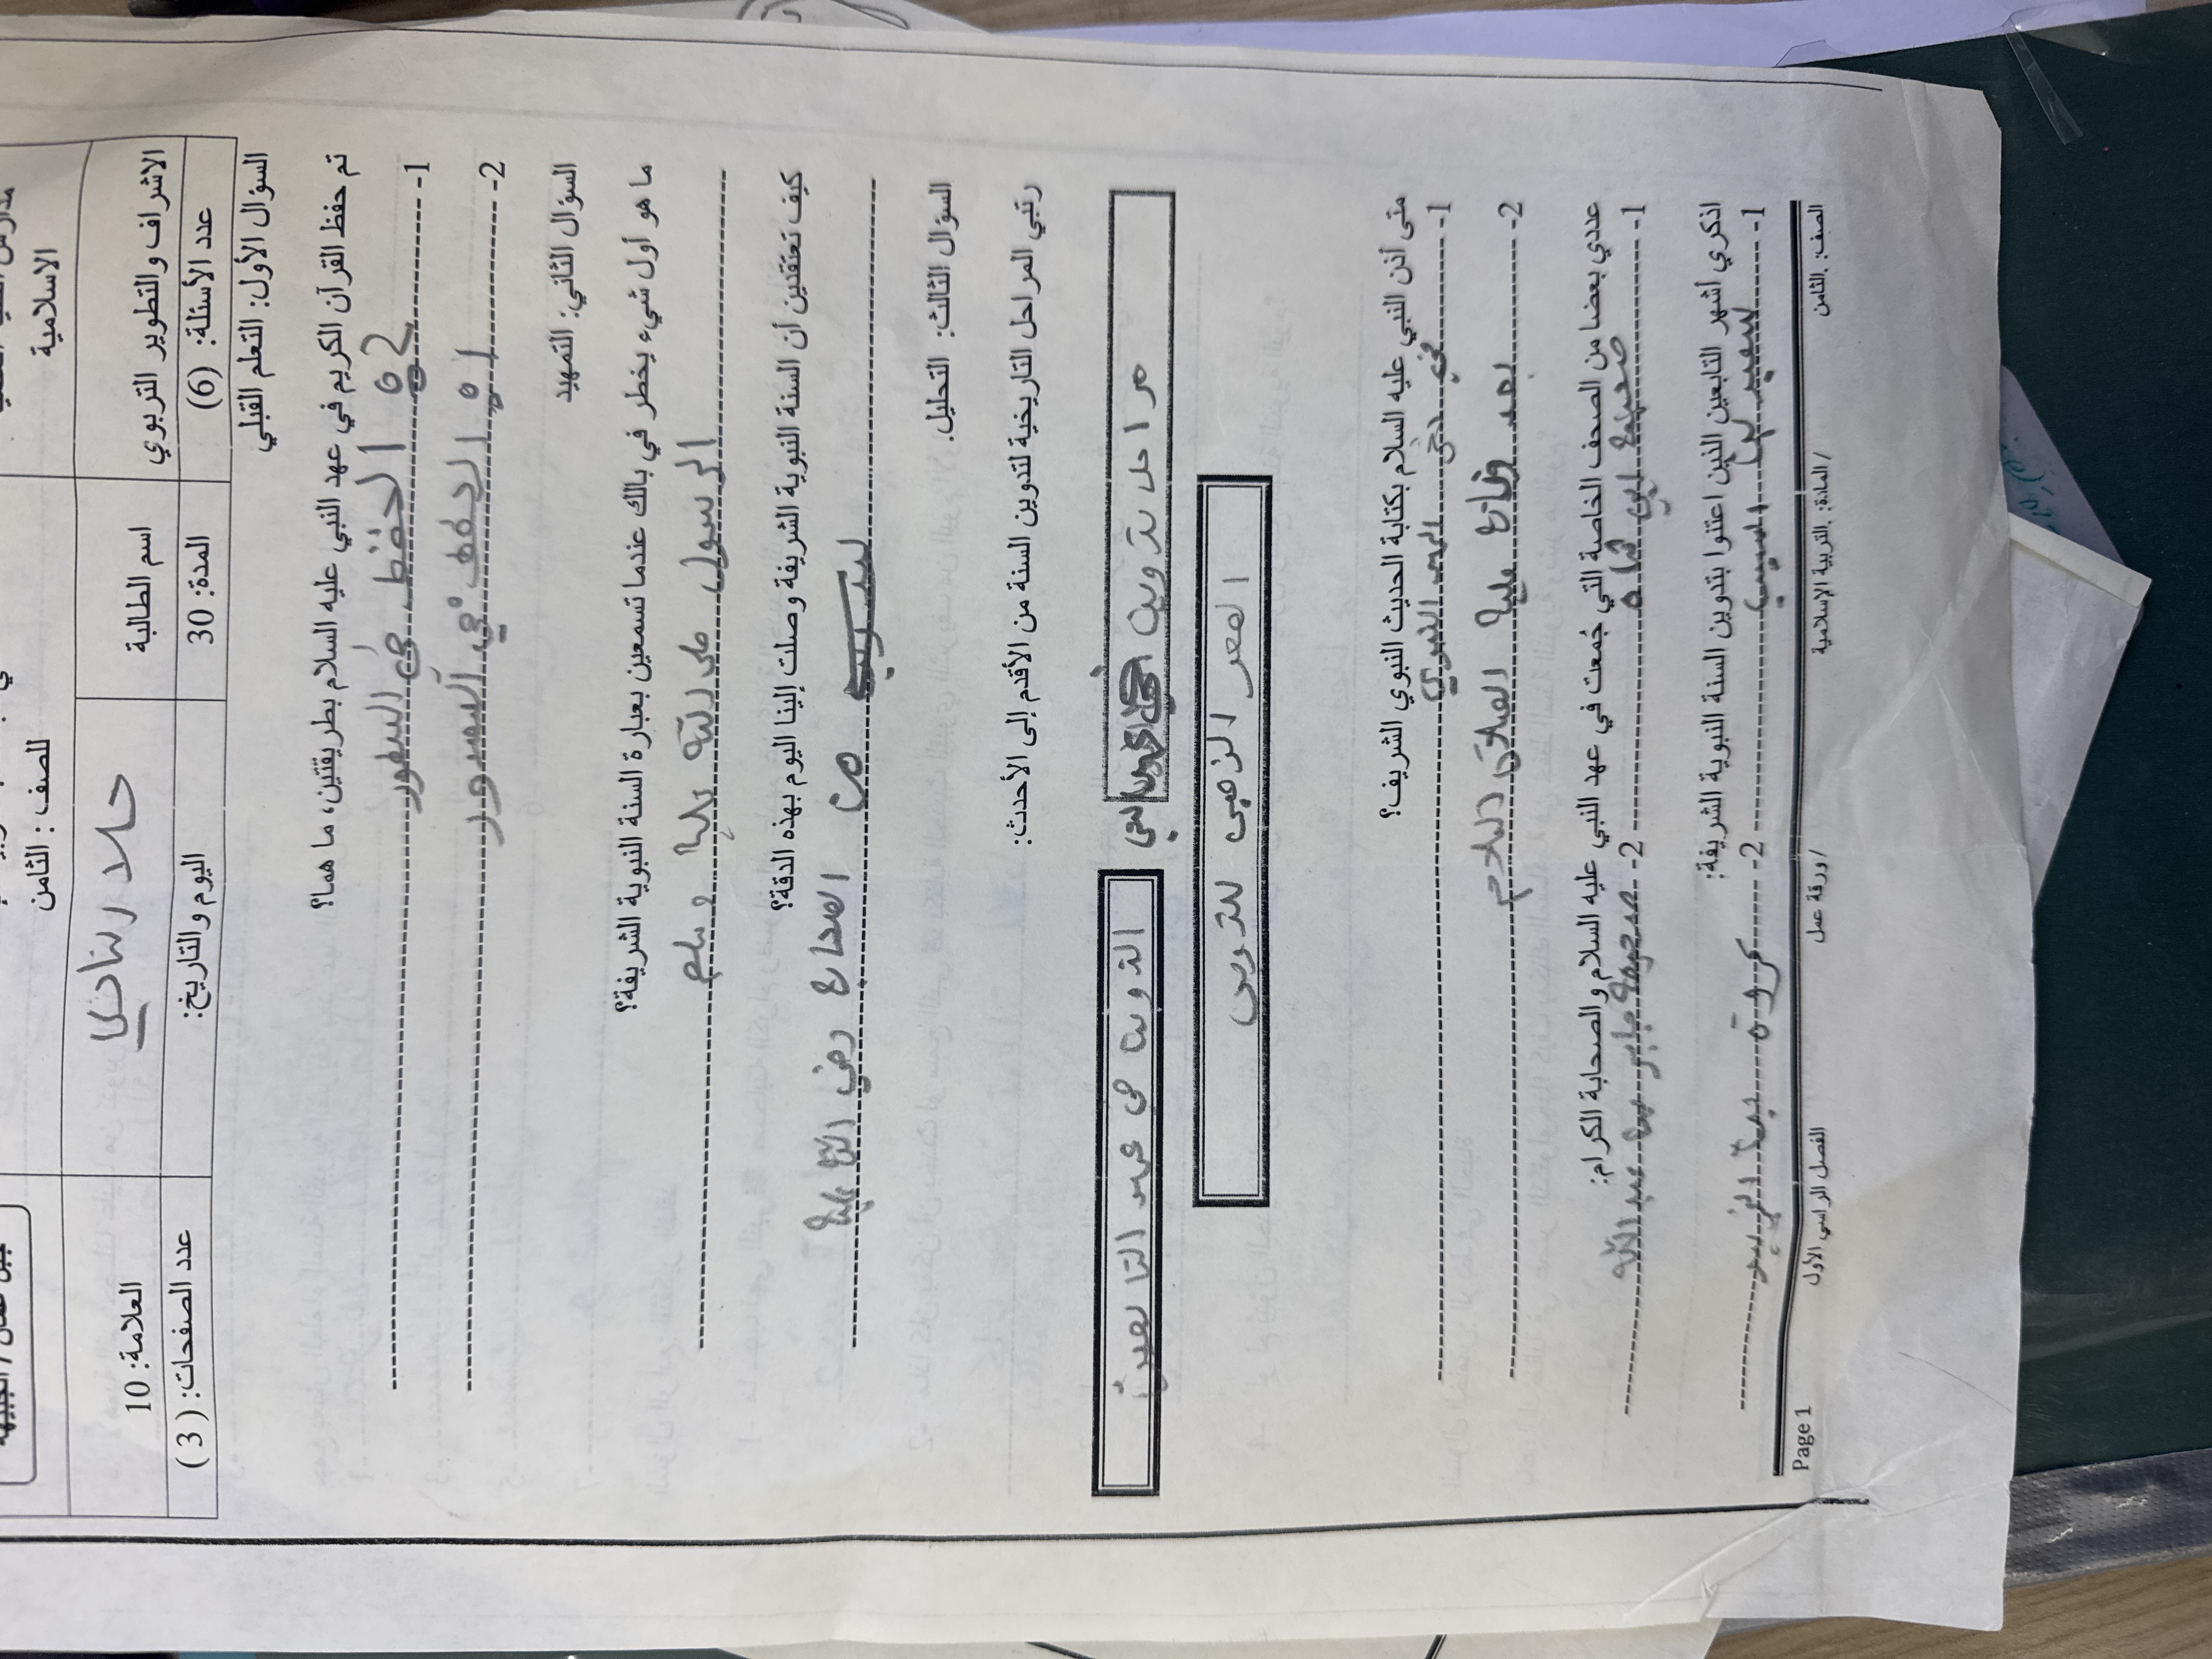 الاسلامية
للصف : الثامن
اسم الطالبة
حلا
العلامة: 10
الاشراف والتطوير التربوي
عدد الأسئلة: (6)
المدة: 30
اليوم والتاريخ:
عدد الصفحات: ( 3 )
السؤال الأول: التعلم القبلي
تم حفظ القرآن الكريم في عهد النبي عليه السلام بطريقتين، ما هما؟
1- الحفظ في السطور
2- الحفظ في الصدور
السؤال الثاني: التمهيد
ما هو أول شيء يخطر في بالك عندما تسمعين بعبارة السنة النبوية الشريفة؟
الرسول صلى الله عليه وسلم
كيف تعتقدين أن السنة النبوية الشريفة وصلت إلينا اليوم بهذه الدقة؟
من الصحابة رضي الله عليهم
السؤال الثالث: التحليل.
رتبي المراحل التاريخية لتدوين السنة من الأقدم إلى الأحدث:
مراحل تدوين النبي
التدوين في عهد التابعين
العصر الذهبي للتدوين
متى أذن النبي عليه السلام بكتابة الحديث النبوي الشريف؟
1- في النبوي
2- بعد وفاة عليه الصلاة والسلام
عددي بعضا من الصحف الخاصة التي جُمعت في عهد النبي عليه السلام والصحابة الكرام:
1- صحيفة ابي شاه 2- صحيفة جابر بن عبد الله
اذكري أشهر التابعين الذين اعتنوا بتدوين السنة النبوية الشريفة:
1- سعيد بن المسيب 2- عروة بن الزبير
الصف: الثامن / المادة: التربية الإسلامية / ورقة عمل الفصل الدراسي الأول
Page 1